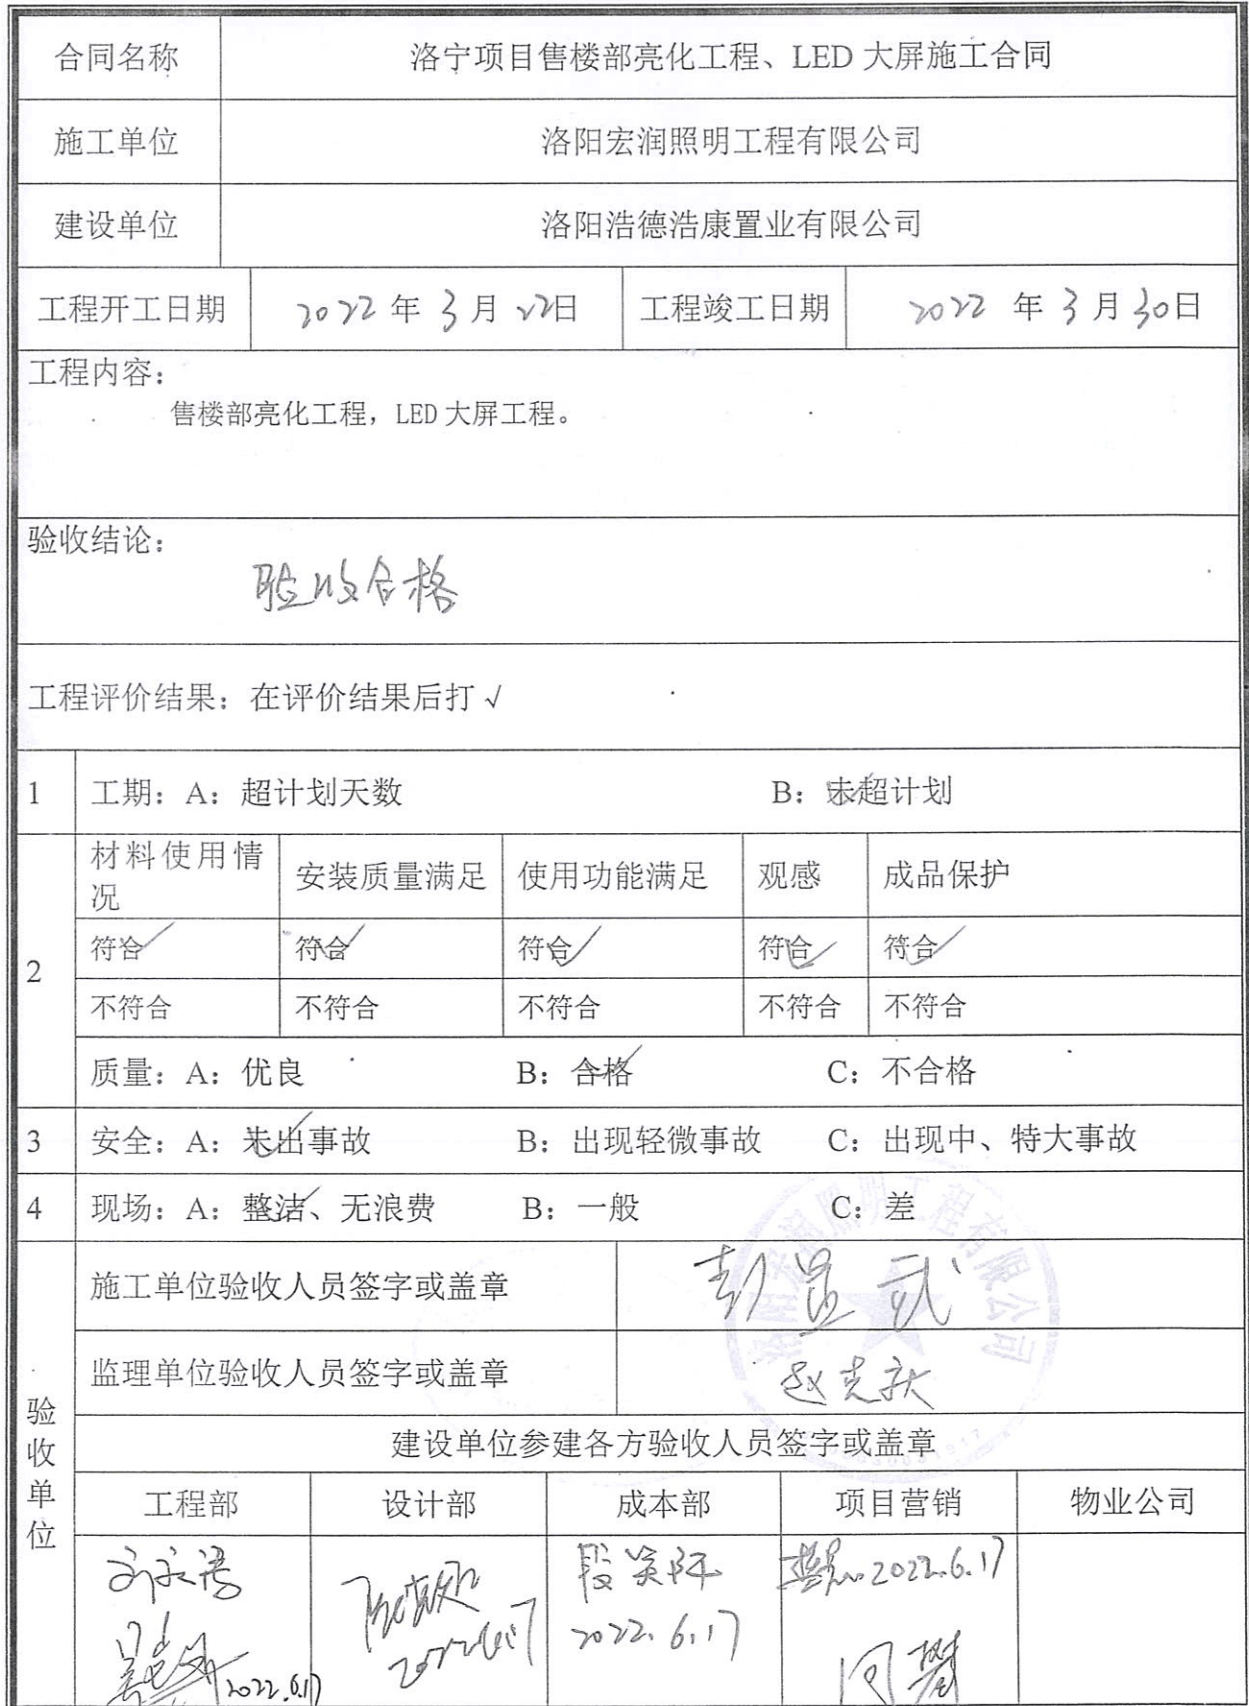 合同名称 洛宁项目售楼部亮化工程、LED 大屏施工合同
施工单位 洛阳宏润照明工程有限公司
建设单位 洛阳浩德浩康置业有限公司
工程开工日期 2022 年 3 月 22日 工程竣工日期 2022 年 3 月 30日
工程内容：
售楼部亮化工程，LED 大屏工程。
验收结论：
验收合格
工程评价结果：在评价结果后打 √
1 工期：A：超计划天数 B：未超计划
材料使用情况 安装质量满足 使用功能满足 观感 成品保护
符合 符合 符合 符合 符合
2
不符合 不符合 不符合 不符合 不符合
质量：A：优良 B：合格 C：不合格
3 安全：A：未出事故 B：出现轻微事故 C：出现中、特大事故
4 现场：A：整洁、无浪费 B：一般 C：差
洛阳宏润照明工程有限公司
验收单位
施工单位验收人员签字或盖章
监理单位验收人员签字或盖章
建设单位参建各方验收人员签字或盖章
工程部 设计部 成本部 项目营销 物业公司
2022.6.17
2022.6.17
2022.6.17
2022.6.17